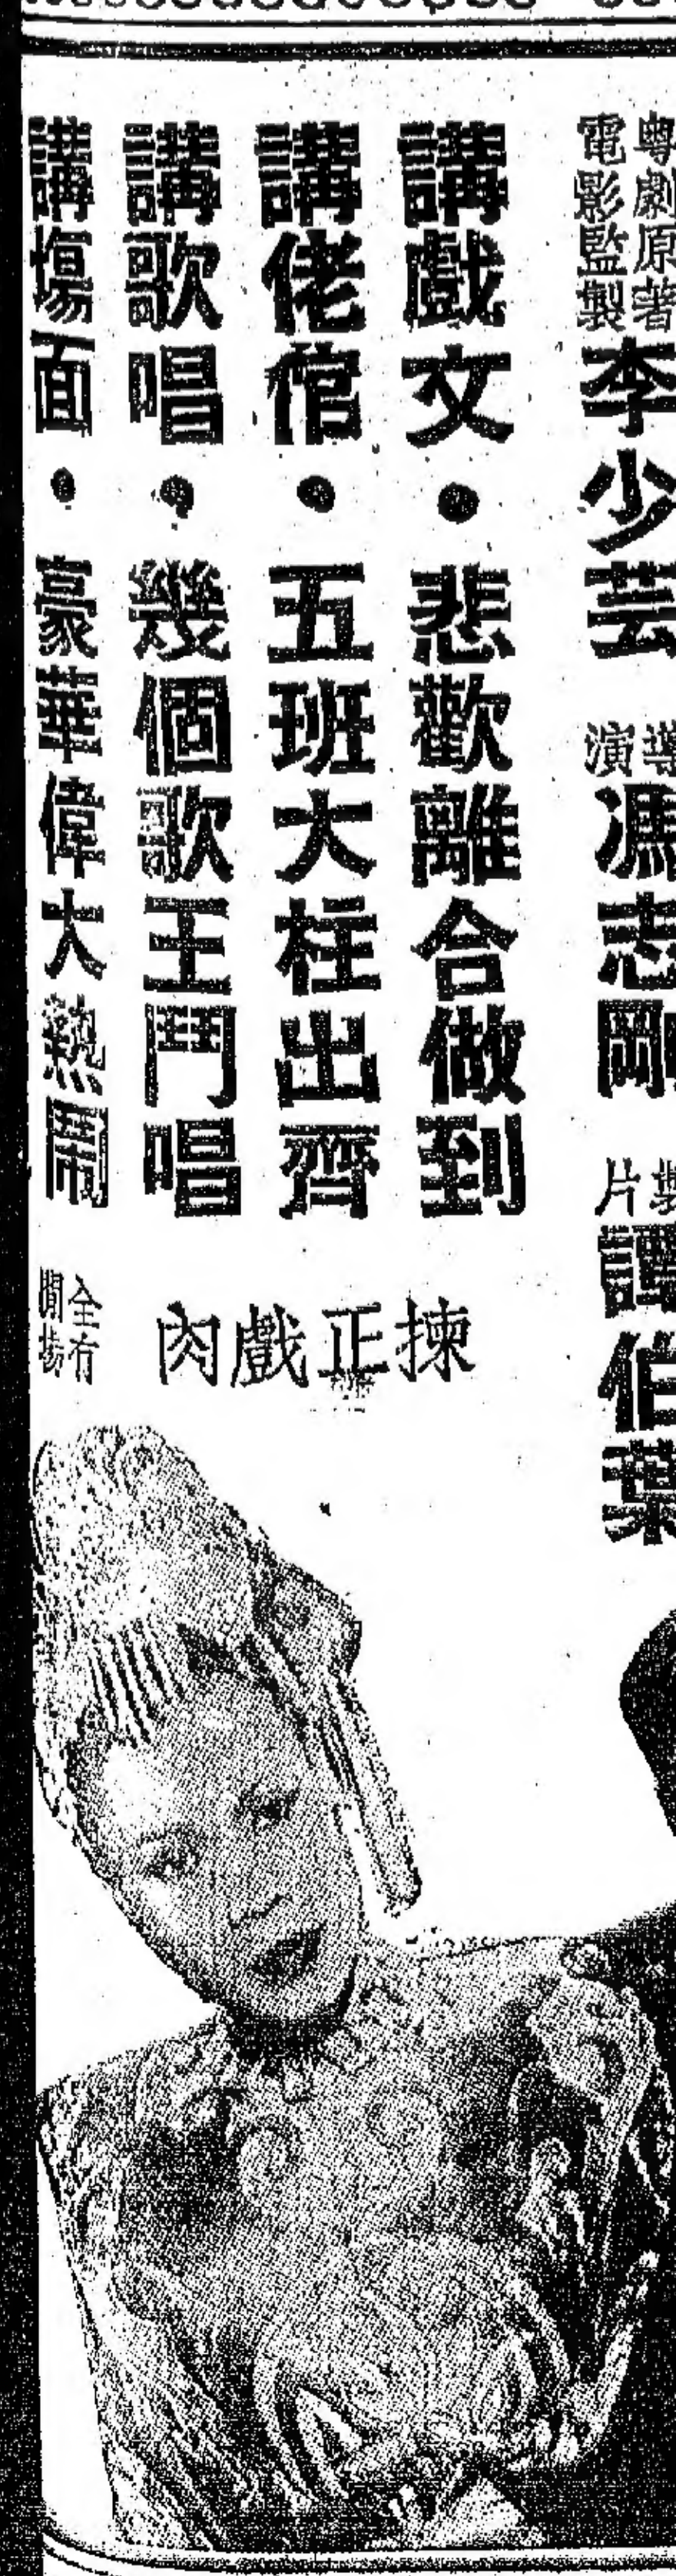 粵劇原著
電影監製
李少芸
導演
馮志剛
製片
譚伯葉
講戲文•悲歡離合做到
揀正戲肉
講佬倌•五班大柱出齊
講歌唱•幾個歌王鬥唱
講場面•豪華偉大熱鬧
全有
開場